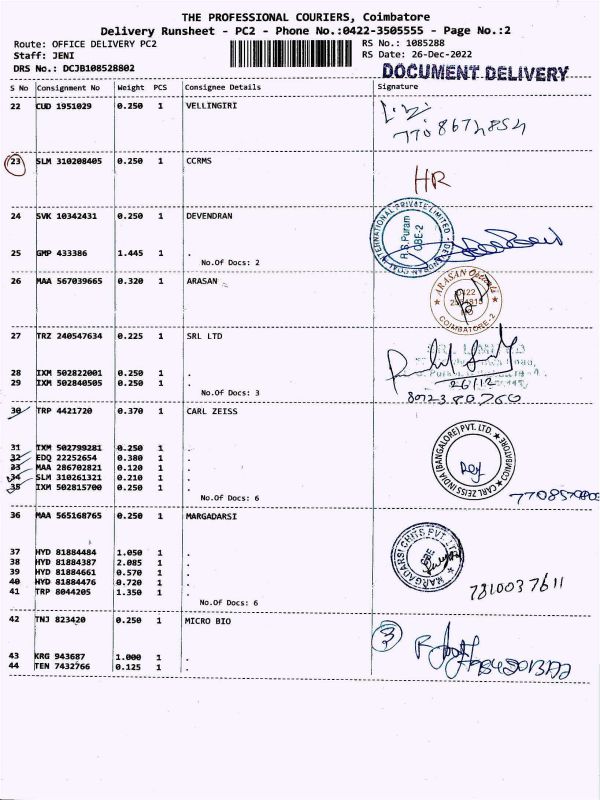 THE PROFESSIONAL COURIERS, Coimbatore
Delivery Runsheet - PC2 - Phone No.:0422-3505555 - Page No.:2
Route: OFFICE DELIVERY PC2 RS No.: 1085288
Staff: JENI RS Date: 26-Dec-2022
DRS No.: DCJB108528802 DOCUMENT DELIVERY
S No Consignment No Weight PCS Consignee Details Signature
22 CUD 1951029 0.250 1 VELLINGIRI
7708674854
23 SLM 310208405 0.250 1 CCRMS
HR
24 SVK 10342431 0.250 1 DEVENDRAN
R.S.Puram
CBE-2
25 GMP 433386 1.445 1 .
No.Of Docs: 2
26 MAA 567039665 0.320 1 ARASAN
ARASAN Opticals
0422
COIMBATORE-2
27 TRZ 240547634 0.225 1 SRL LTD
28 IXM 502822001 0.250 1 .
29 IXM 502840505 0.250 1 .
26/12
No.Of Docs: 3
8072380760
30 TRP 4421720 0.370 1 CARL ZEISS
31 IXM 502799281 0.250 1 .
32 EDQ 22252654 0.380 1 .
33 MAA 286702821 0.120 1 .
34 SLM 310261321 0.210 1 .
35 IXM 502815700 0.250 1 .
CARL ZEISS INDIA (BANGALORE) PVT. LTD COIMBATORE
No.Of Docs: 6
36 MAA 565168765 0.250 1 MARGADARSI
MARGADARSI CHITS PVT. LTD
CBE
37 HYD 81884484 1.050 1 .
38 HYD 81884387 2.085 1 .
39 HYD 81884661 0.570 1 .
40 HYD 81884476 0.720 1 .
41 TRP 8044205 1.350 1 .
7810037611
No.Of Docs: 6
42 TNJ 823420 0.250 1 MICRO BIO
3
43 KRG 943687 1.000 1 .
44 TEN 7432766 0.125 1 .